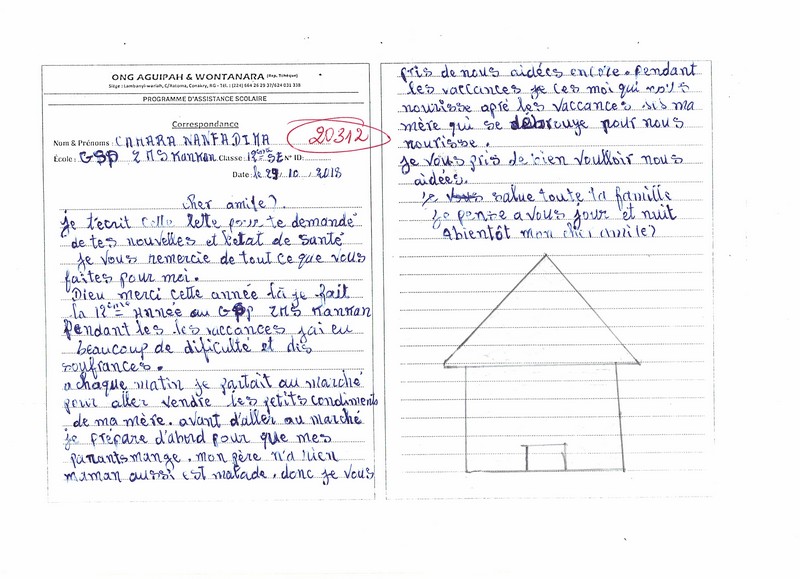 ONG AGUIPAH & WONTANARA (Rep. Tchèque)
Siège : Lambanyi-wariah, C/Ratoma, Conakry, RG - Tél. : (224) 664 26 29 37/624 031 338
PROGRAMME D'ASSISTANCE SCOLAIRE
Correspondance
Nom & Prénoms CAMARA NANFADIMA
20312
École : GSP ZMS Kankan Classe 12ème SE N° ID:
Date : le 29/10/2018
cher amis(e).
je t'ecrit cette lette pour te demandé
de tes nouvelles et l'etat de santé
je vous remercie de tout ce que vous
faites pour moi.
Dieu merci cette année là je fait
la 12ème Année au GSP ZMS Kankan
Pendant les les vaccances j'ai eu
beaucoup de dificulté et des
soufrances.
a chaque matin je partait au marché
pour aller vendre les petits condiments
de ma mère. avant d'aller au marché
je prépare d'abord pour que mes
parants mange. mon père n'a rien
maman aussi est malade. donc je vous
pris de nous aidées encore. Pendant
les vaccances je ces moi qui nous
nourisse apré les vaccances sis ma
mère qui se debrouye pour nous
nourisse.
je vous pris de bien voulloir nous
aidées.
je salue toute la famille
je pense a vous jour et nuit
Abientôt mon cher ami(e)